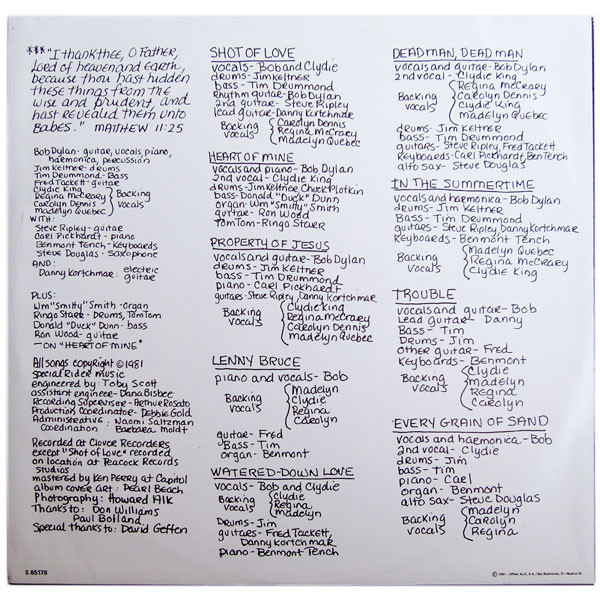 *** "I thank thee, O Father,
Lord of heaven and Earth,
because thou hast hidden
these things from the
wise and prudent, and
hast revealed them unto
Babes." MATTHEW 11:25
Bob Dylan - guitar, vocals, piano,
harmonica, percussion
Jim Keltner - drums
Tim Drummond - bass
Fred Tackett - guitar
Clydie King
Regina McCrary
Carolyn Dennis
Madelyn Quebec
Backing
vocals
WITH:
Steve Ripley - guitar
Carl Pickhardt - piano
Benmont Tench - Keyboards
Steve Douglas - saxophone
AND:
Danny Kortchmar: electric
guitar
PLUS:
Wm "Smitty" Smith - organ
Ringo Starr - Drums, TomTom
Donald "Duck" Dunn - bass
Ron Wood - guitar
— ON "HEART OF MINE"
All songs copyright © 1981
Special Rider Music
engineered by: Toby Scott
assistant engineer - Dana Bisbee
Recording Supervisor - Arthur Rosato
Production Coordinator - Debbie Gold
Administrative: Naomi Saltzman
Coordination Barbara Moldt
Recorded at Clover Recorders
except "Shot of Love" recorded
on location at Peacock Records
studios
mastered by Ken Perry at Capitol
album cover art: Pearl Beach
Photography: Howard Alk
Thanks to: Don Williams
Paul Bolland
Special thanks to: David Geffen
S 85178
SHOT OF LOVE
vocals - Bob and Clydie
drums - Jim Keltner
bass - Tim Drummond
Rhythm guitar - Bob Dylan
2nd guitar - Steve Ripley
lead guitar - Danny Kortchmar
Backing
vocals
Carolyn Dennis
Regina McCrary
Madelyn Quebec
HEART OF MINE
vocals and piano - Bob Dylan
2nd vocal - Clydie King
drums - Jim Keltner, Chuck Plotkin
Bass - Donald "Duck" Dunn
organ - Wm "Smitty" Smith
guitar - Ron Wood
TomTom - Ringo Starr
PROPERTY OF JESUS
vocals and guitar - Bob Dylan
drums - Jim Keltner
bass - Tim Drummond
piano - Carl Pickhardt
guitars - Steve Ripley, Danny Kortchmar
Backing
vocals
Clydie King
Regina McCrary
Carolyn Dennis
Madelyn Quebec
LENNY BRUCE
piano and vocals - Bob
Backing
vocals
Madelyn
Clydie
Regina
Carolyn
guitar - Fred
Bass - Tim
organ - Benmont
WATERED-DOWN LOVE
vocals - Bob and Clydie
Backing
vocals
Clydie
Regina
Madelyn
Drums - Jim
guitars - Fred Tackett,
Danny Kortchmar
piano - Benmont Tench
DEAD MAN, DEAD MAN
vocals and guitar - Bob Dylan
2nd vocal - Clydie King
Backing
vocals
Regina McCrary
Carolyn Dennis
Clydie King
Madelyn Quebec
drums - Jim Keltner
bass - Tim Drummond
guitars - Steve Ripley, Fred Tackett
Keyboards - Carl Pickhardt, Ben Tench
alto sax - Steve Douglas
IN THE SUMMERTIME
vocals and harmonica - Bob Dylan
drums - Jim Keltner
Bass - Tim Drummond
guitars - Steve Ripley, Danny Kortchmar
Keyboards - Benmont Tench
Backing
vocals
Madelyn Quebec
Regina McCrary
Clydie King
TROUBLE
vocals and guitar - Bob
Lead guitar - Danny
Bass - Tim
Drums - Jim
other guitar - Fred
Keyboards - Benmont
Backing
vocals
Clydie
Madelyn
Regina
Carolyn
EVERY GRAIN OF SAND
vocals and harmonica - Bob
2nd vocal - Clydie
drums - Jim
bass - Tim
piano - Carl
organ - Benmont
alto sax - Steve Douglas
Backing
vocals
Madelyn
Carolyn
Regina